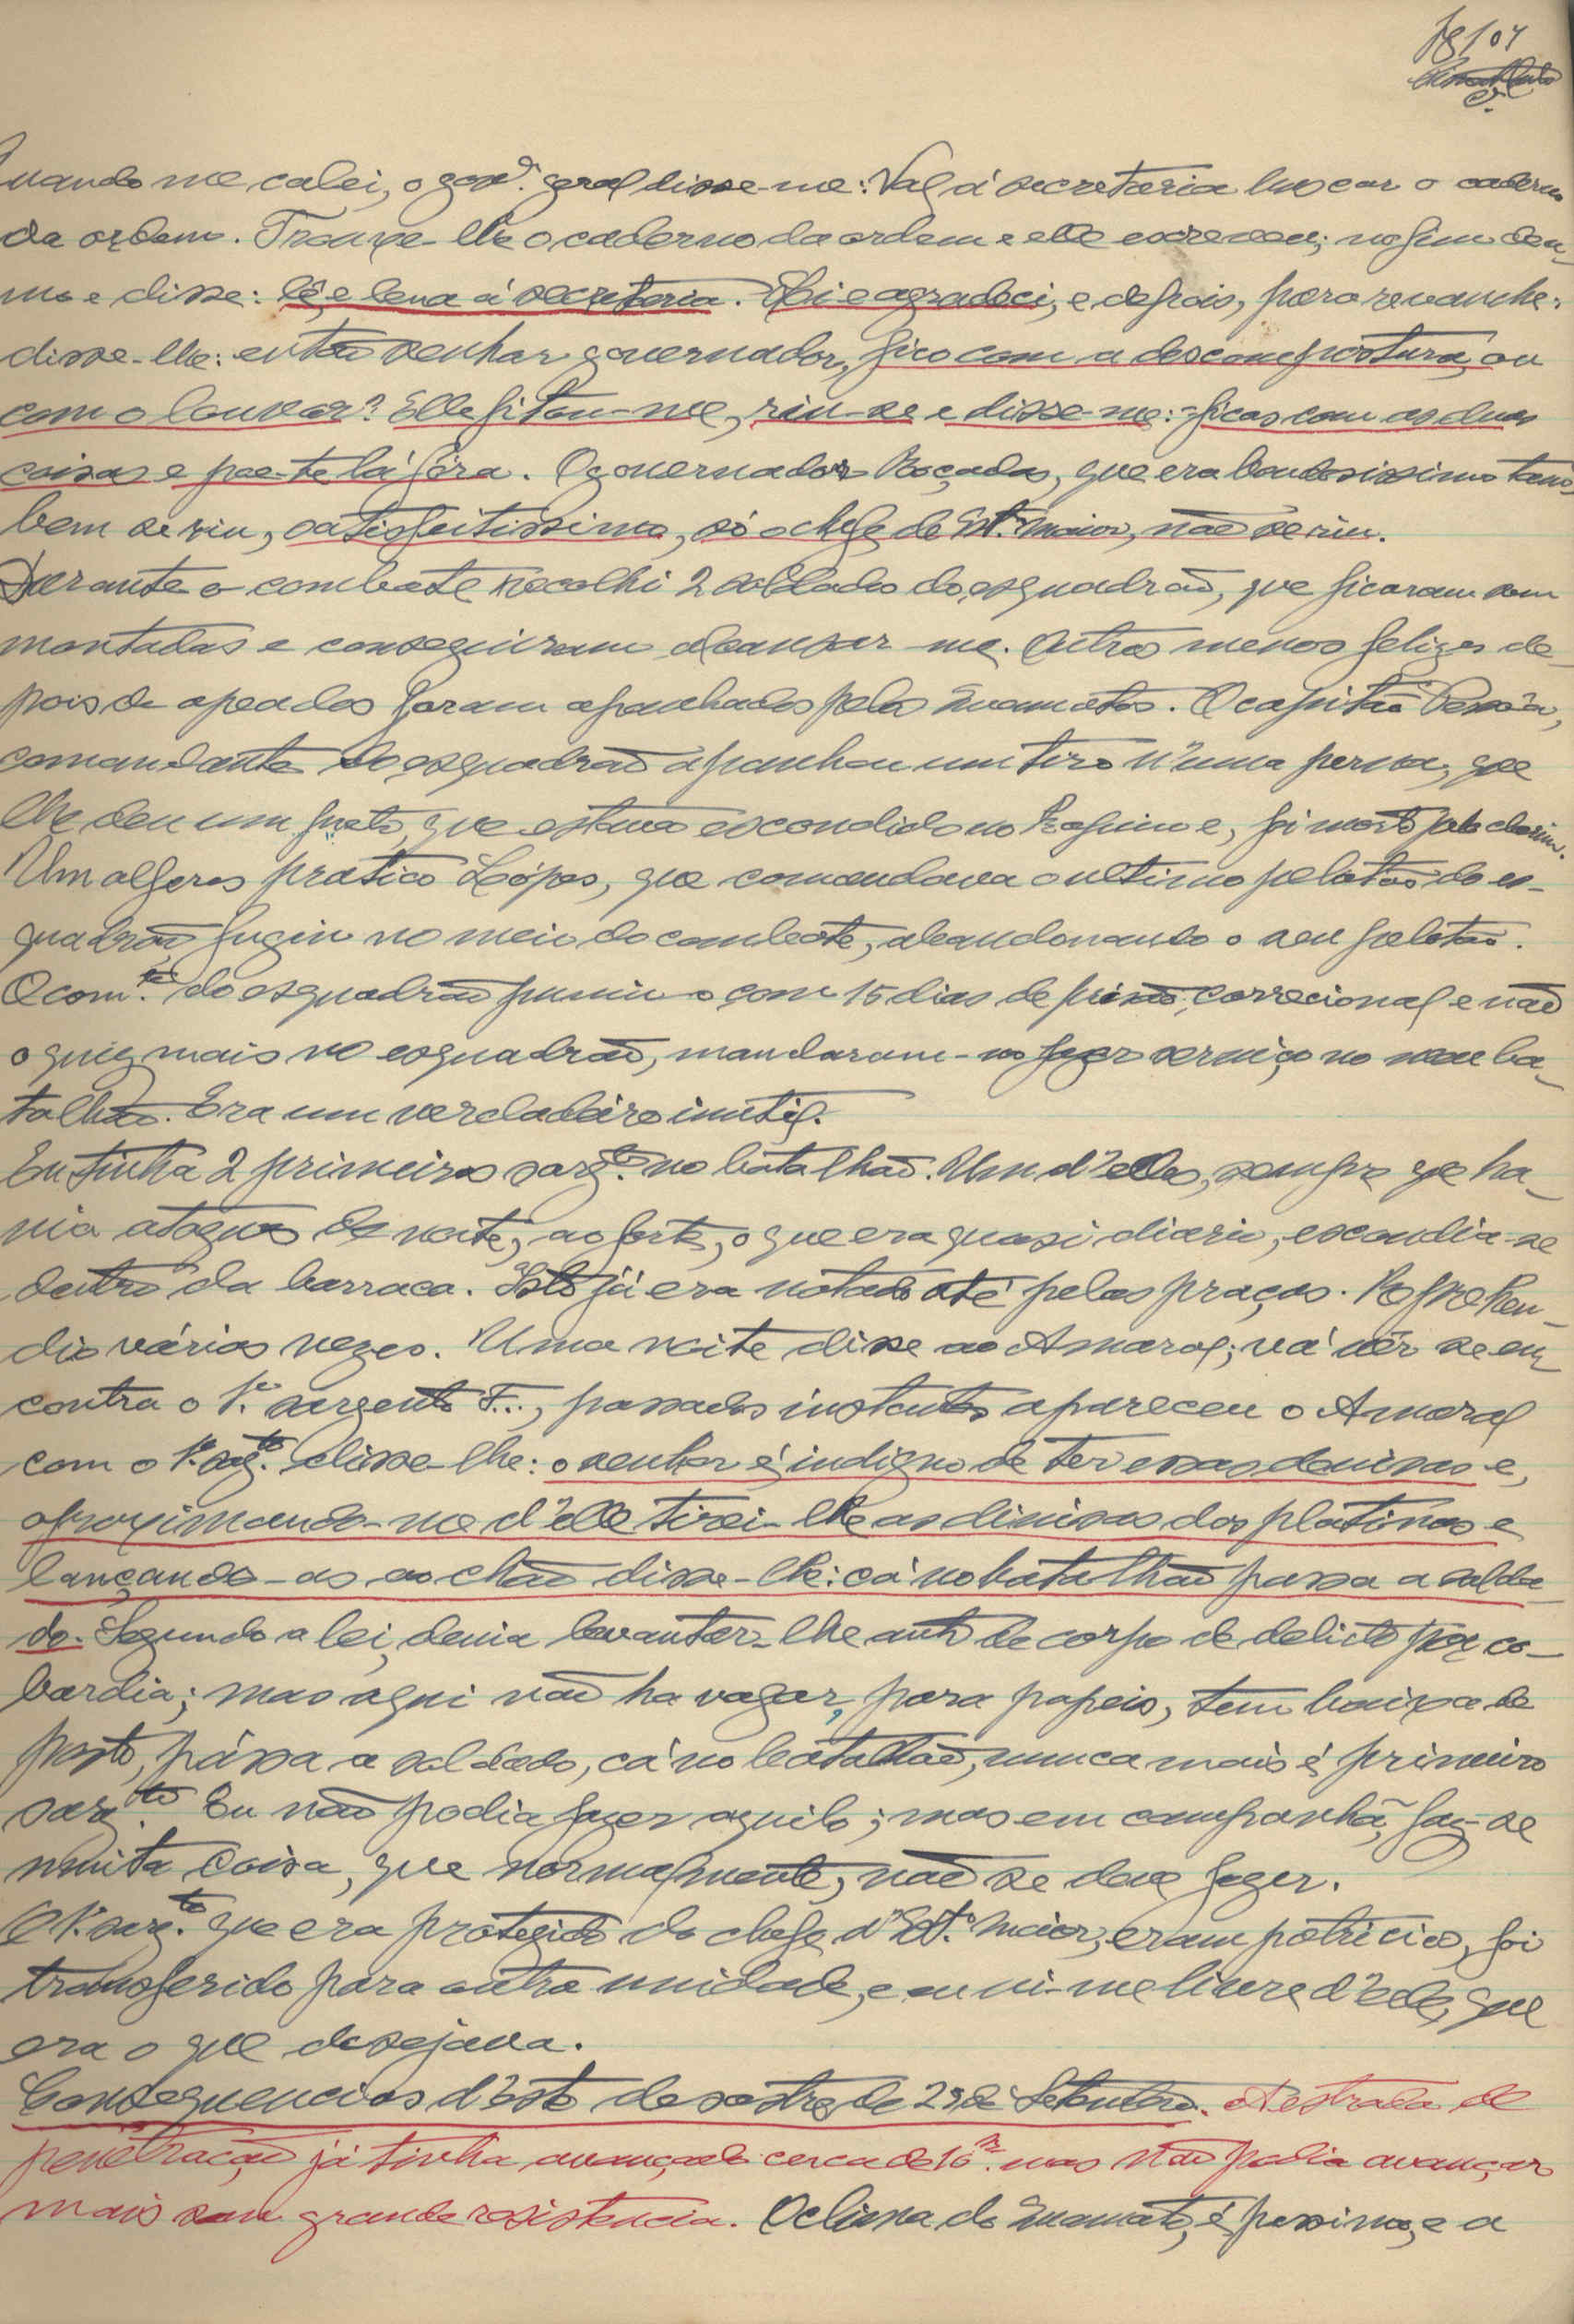 Quando me calei, o gov.or geral disse-me: Vae á secretaria buscar o caderno
da ordem. Trouxe-lhe o caderno da ordem e elle escreveu; no fim deu-
mo e disse: lê, e leva á secretaria. Li e agradeci, e depois, para revanche:
disse-lhe: então senhor governador, fico com a descompostura, ou
com o louvor? Elle fitou-me, riu-se e disse-me:-ficas com as duas
coisas e põe-te lá fóra. O governador Roçadas, que era bondosissimo tam-
bem se riu, satisfeitissimo, só o chefe do Est.º maior, não se riu.
Durante o combate recolhi 2 soldados do esquadrão, que ficaram sem
montadas e conseguiram alcansar-me. Outros menos felizes de-
pois de apeados foram apanhados pelos Cuamatos. O capitão
comandante do esquadrão apanhou um tiro n'uma perna, que
lhe deu um preto, que estava escondido no capim e, foi morto pelo clarim.
Um alferes pratico Lópes, que comandava o ultimo pelotão do es-
quadrão fugiu no meio do combate, abandonando o seu pelotão.
O com.te do esquadrão puniu-o com 15 dias de prisão correcional e não
o quiz mais no esquadrão, mandaram-no fazer serviço no meu ba-
talhão. Era um verdadeiro inutil.
Eu tinha 2 primeiros sarg.tos no batalhão. Um d'elles, sempre que ha-
via ataques de noite, ao forte, o que era quasi diario, escondia-se
dentro da barraca. Isto já era notado até pelas praças. Reprehen-
di-o várias vezes. Uma noite disse ao Amaral; vá vêr se en-
contra o 1.º sargento F..., passados instantes apareceu o Amaral
com o 1.º sarg.to disse-lhe: o senhor é indigno de ter essas devisas e,
aproximando-me d'elle tirei-lhe as divisas das platinas e
lançando-as ao chão disse-lhe: cá no batalhão passa a solda-
do. Segundo a lei, devia levantar-lhe auto de corpo de delicto por co-
bardia; mas aqui não ha vagar, para papeis, tem baixa de
posto, pássa a soldado, cá no batalhão, nunca mais é primeiro
sarg.to Eu não podia fazer aquilo; mas em campanha, faz-se
muita coisa, que normalmente, não se deve fazer.
O 1.º sarg.to que era protegido do chefe d'Est.º maior, eram patricios, foi
transferido para outra unidade, e eu vi-me livre d'elle, que
era o que desejava.
Consequencias d'este desastre de 25 de Setembro. A estrada de
penetração já tinha avançado cerca de 10 mas não podia avançar
mais sem grande resistencia. O clima do Cuamato, é pessimo, e a